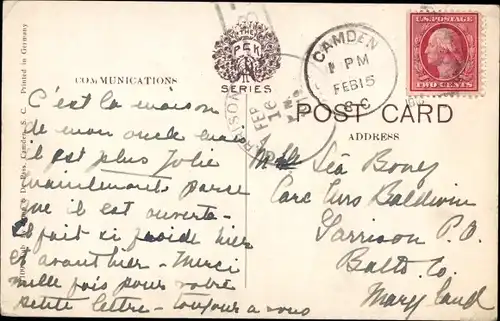 COMMUNICATIONS
C'est la maison
de mon oncle mais
il est plus Jolie
maintenant parce
que il est ouverte -
Il fait si froide hier
et avant hier - Merci
mille fois pour votre
petite lettre - toujours a vous
THE
P C K
SERIES
Camden, S. C. Printed in Germany
CAMDEN
PM
FEB 15
S C
FEB
16
U.S. POSTAGE
TWO CENTS
POST CARD
ADDRESS
Mlle Léa Boney
Care Mrs Baldwin
Garrison P.O.
Balto Co.
Maryland